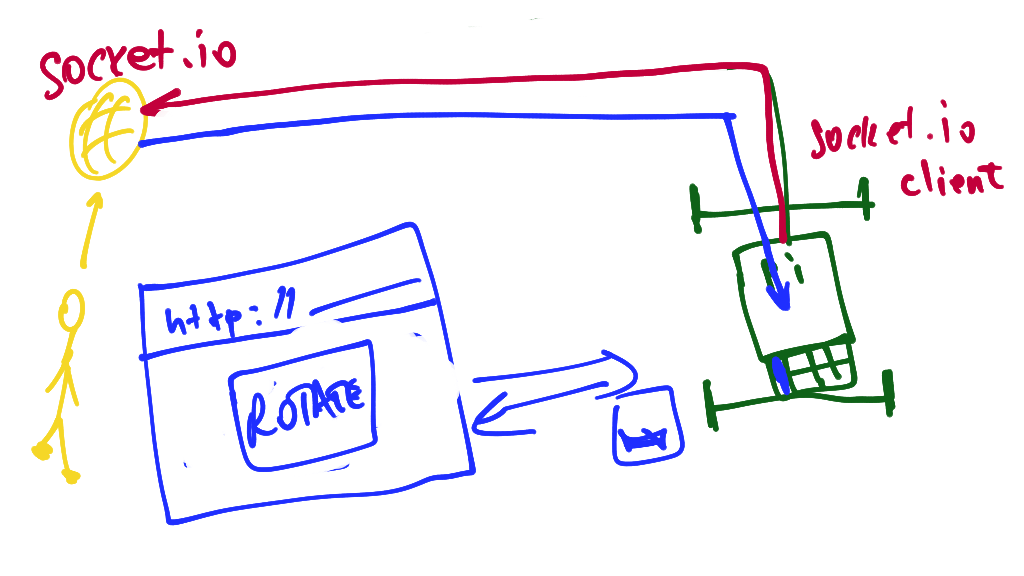 socket.io
socket.io
client
http://
ROTATE